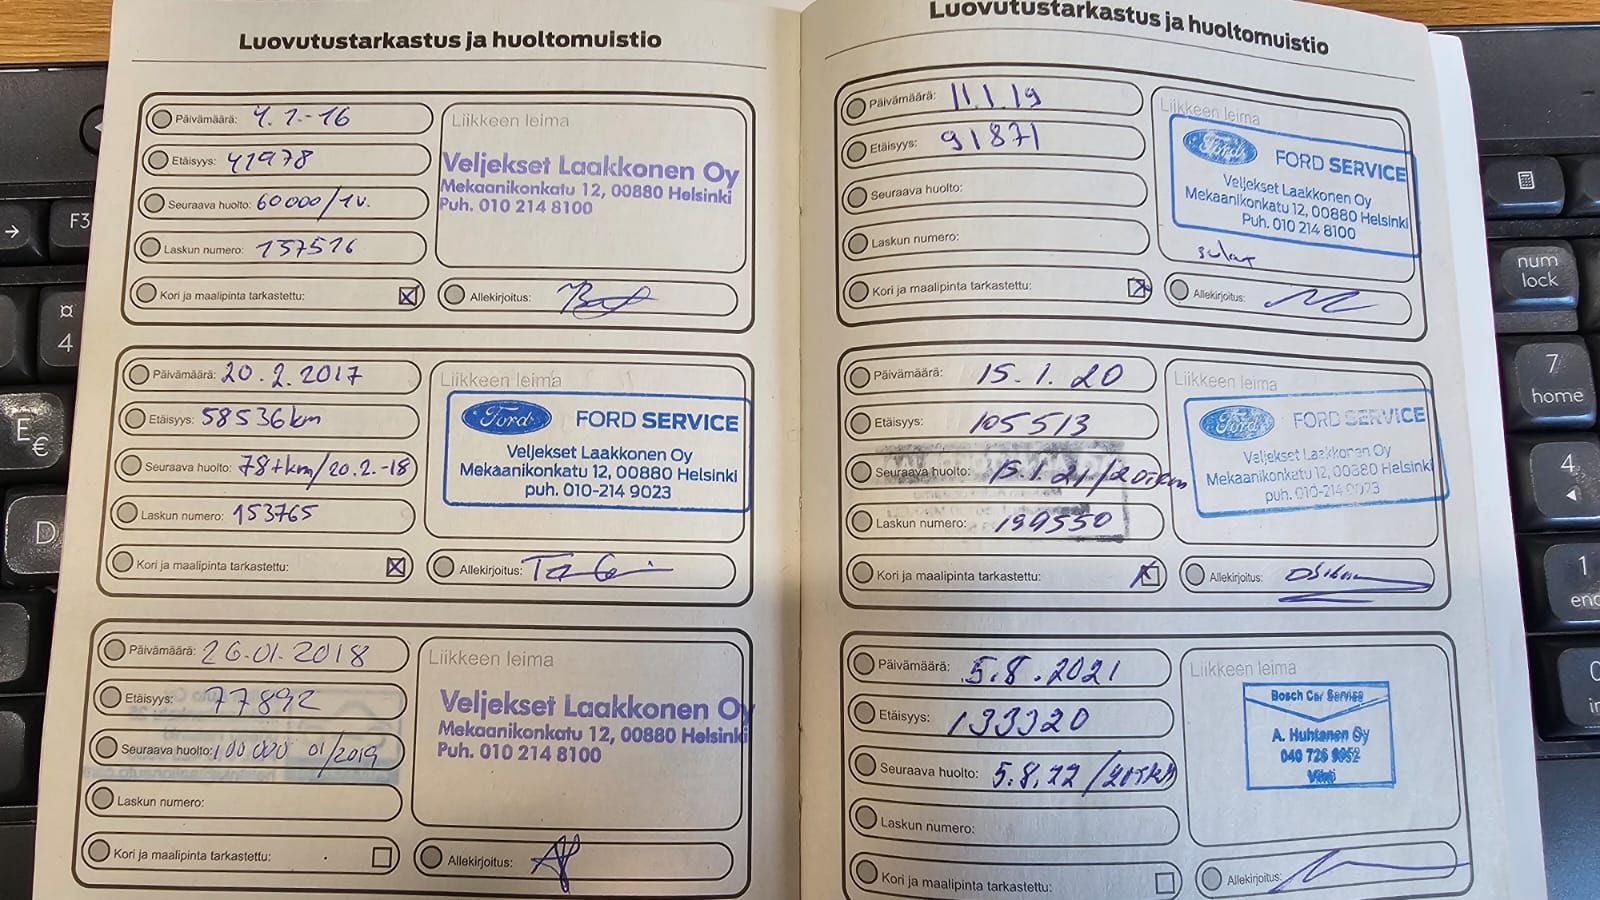 Luovutustarkastus ja huoltomuistio
Päivämäärä: 4.1.-16
Etäisyys: 41978
Seuraava huolto: 60000/1v.
Laskun numero: 137516
Kori ja maalipinta tarkastettu:
Liikkeen leima
Veljekset Laakkonen Oy
Mekaanikonkatu 12, 00880 Helsinki
Puh. 010 214 8100
Allekirjoitus:
Päivämäärä: 20.2.2017
Etäisyys: 58536km
Seuraava huolto: 78tkm/20.2.-18
Laskun numero: 153765
Kori ja maalipinta tarkastettu:
Liikkeen leima
Ford FORD SERVICE
Veljekset Laakkonen Oy
Mekaanikonkatu 12, 00880 Helsinki
puh. 010-214 9023
Allekirjoitus:
Päivämäärä: 26.01.2018
Etäisyys: 77892
Seuraava huolto: 100 000 01/2019
Laskun numero:
Kori ja maalipinta tarkastettu:
Liikkeen leima
Veljekset Laakkonen Oy
Mekaanikonkatu 12, 00880 Helsinki
Puh. 010 214 8100
Allekirjoitus:
Luovutustarkastus ja huoltomuistio
Päivämäärä: 11.1.19
Etäisyys: 91871
Seuraava huolto:
Laskun numero:
Kori ja maalipinta tarkastettu:
Liikkeen leima
Ford FORD SERVICE
Veljekset Laakkonen Oy
Mekaanikonkatu 12, 00880 Helsinki
Puh. 010 214 8100
Allekirjoitus:
Päivämäärä: 15.1.20
Etäisyys: 105513
Seuraava huolto: 15.1.21/20tkm
Laskun numero: 199550
Kori ja maalipinta tarkastettu:
Liikkeen leima
Ford FORD SERVICE
Veljekset Laakkonen Oy
Mekaanikonkatu 12, 00880 Helsinki
puh. 010-214 9023
Allekirjoitus:
Päivämäärä: 5.8.2021
Etäisyys: 133320
Seuraava huolto: 5.8.22/20tkm
Laskun numero:
Kori ja maalipinta tarkastettu:
Liikkeen leima
Bosch Car Service
A. Huhtanen Oy
040 726 9952
Vihti
Allekirjoitus:
F3
¤
4
E
€
D
num
lock
7
home
4
1
end
0